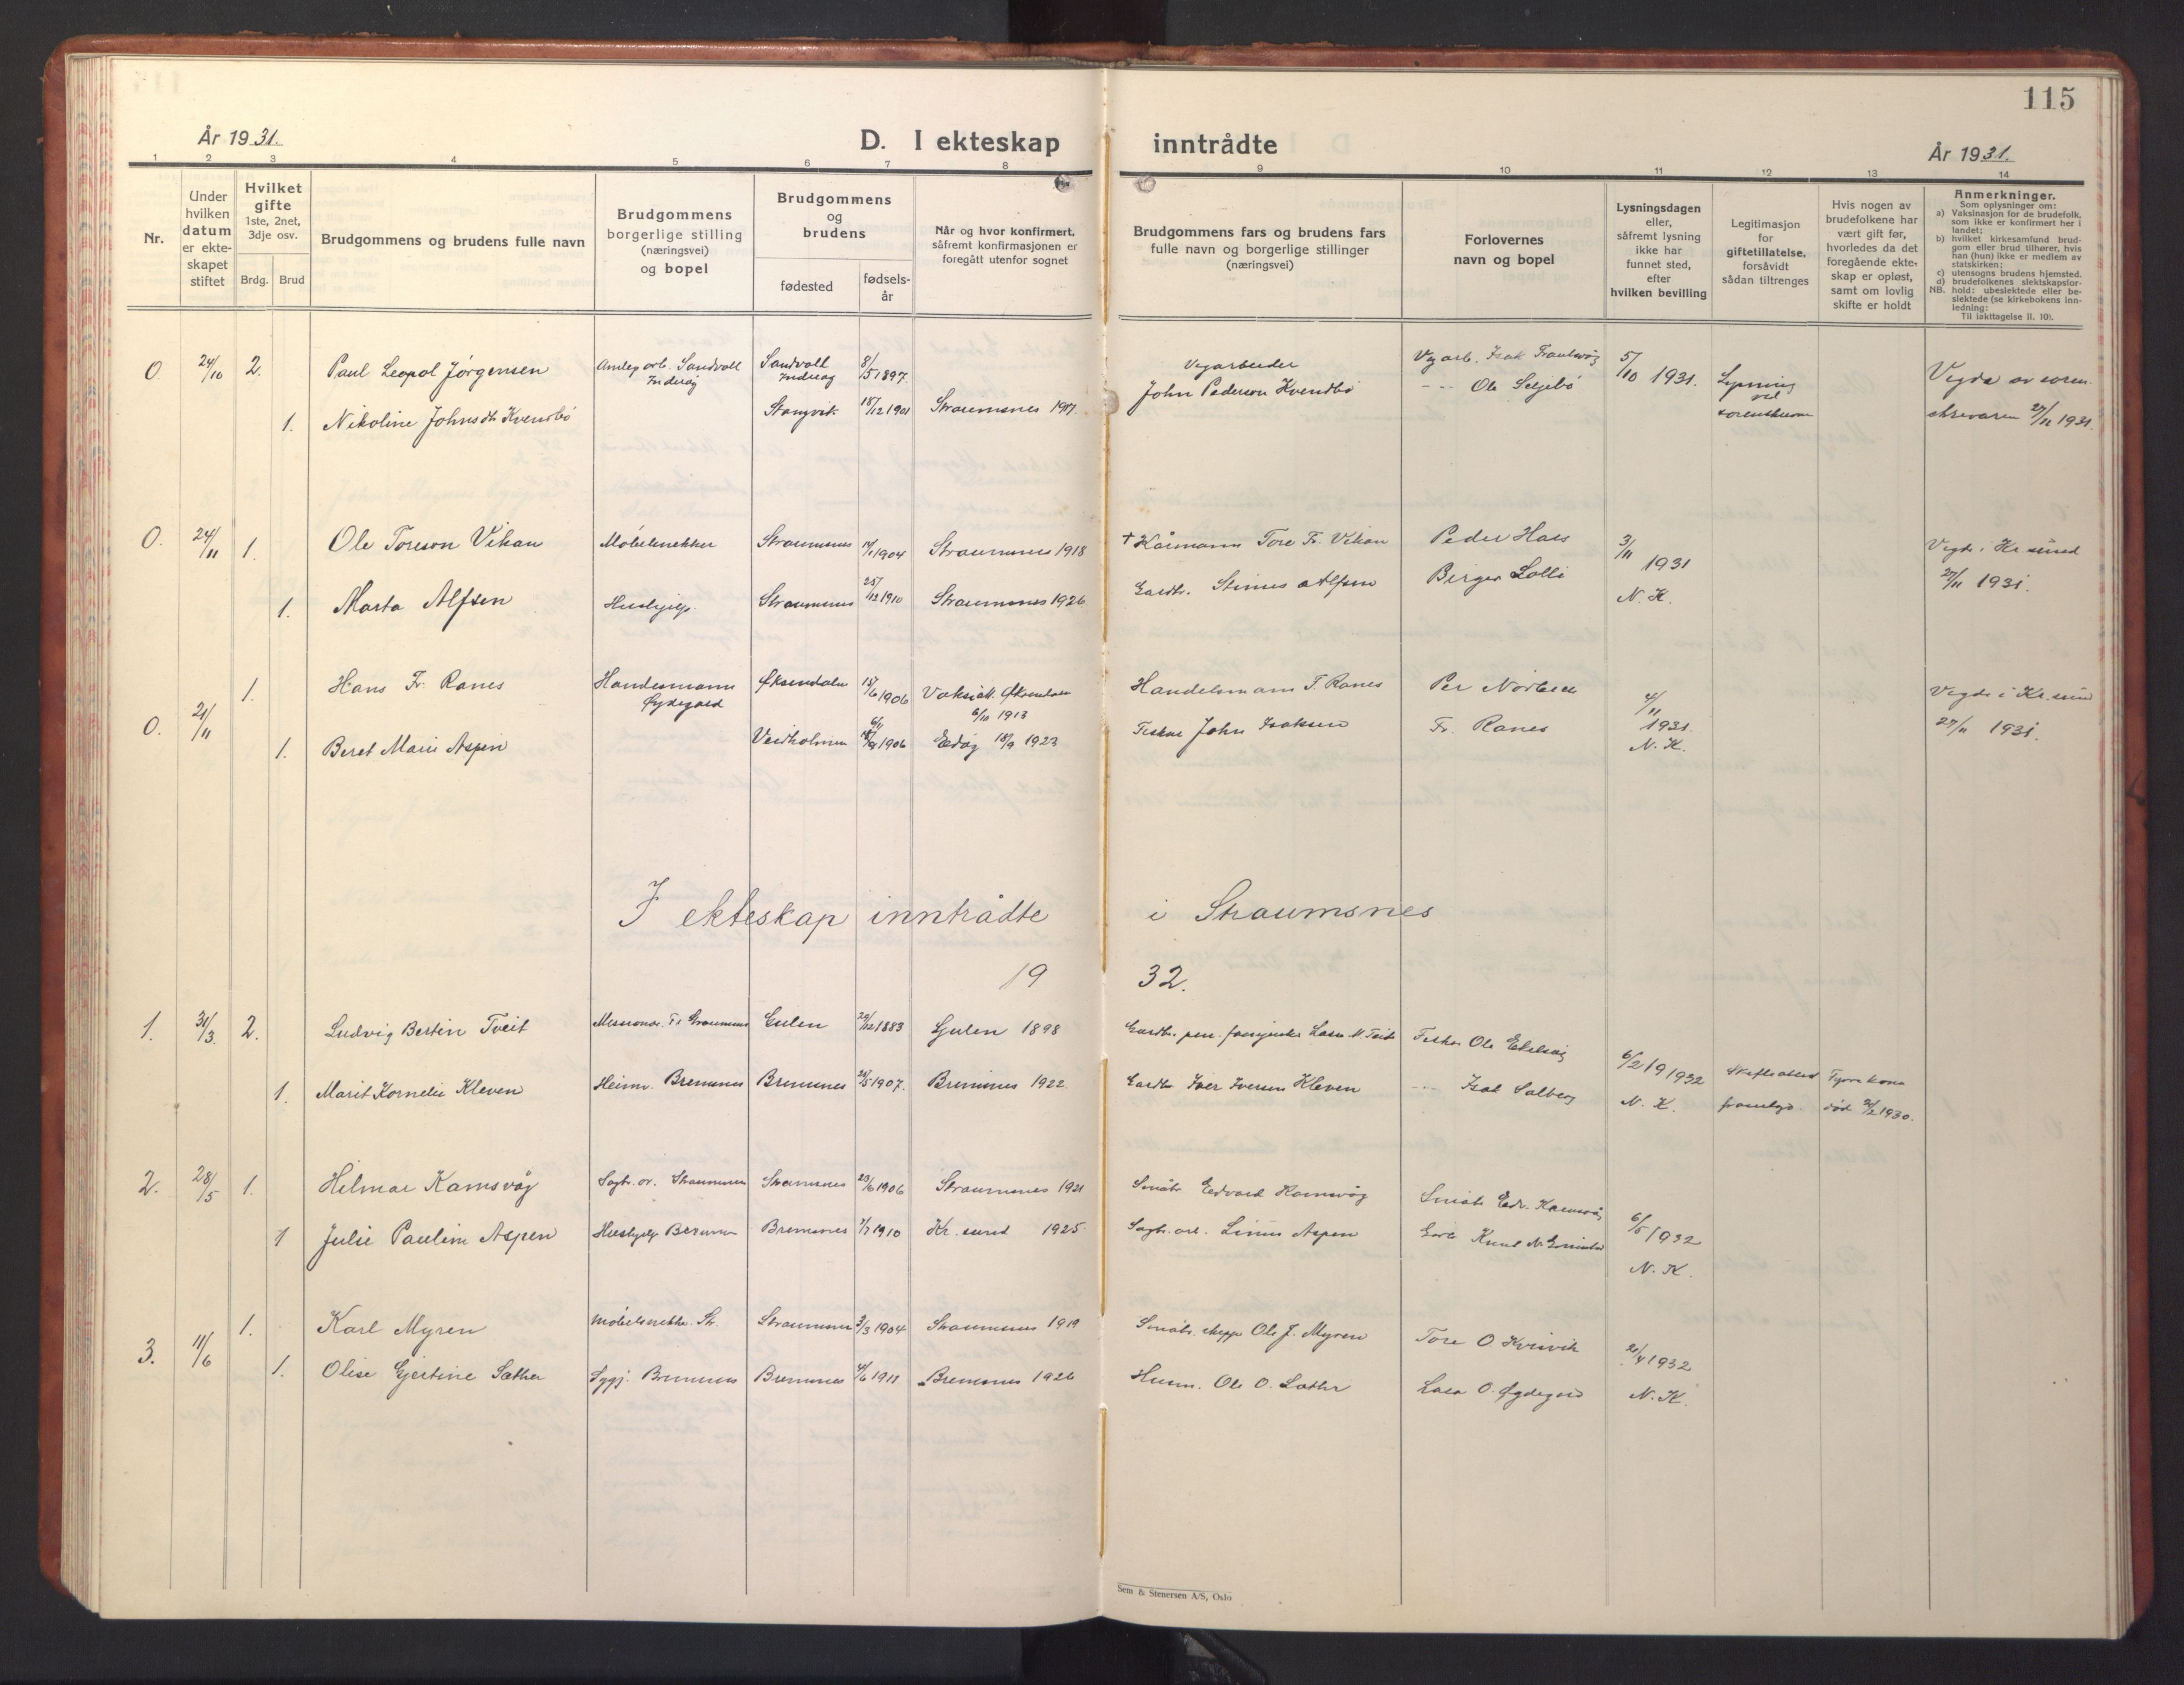 115
År 1931.
D. I ekteskap inntrådte
År 1931.
1 2 3 4 5 6 7 8 9 10 11 12 13 14
Nr.
Under
hvilken
datum
er ekte-
skapet
stiftet
Hvilket
gifte
1ste, 2net,
3dje osv.
Brdg. Brud
Brudgommens og brudens fulle navn
Brudgommens
borgerlige stilling
(næringsvei)
og bopel
Brudgommens
og
brudens
fødested
fødsels-
år
Når og hvor konfirmert,
såfremt konfirmasjonen er
foregått utenfor sognet
Brudgommens fars og brudens fars
fulle navn og borgerlige stillinger
(næringsvei)
Forlovernes
navn og bopel
Lysningsdagen
eller,
såfremt lysning
ikke har
funnet sted,
efter
hvilken bevilling
Legitimasjon
for
giftetillatelse,
forsåvidt
sådan tiltrenges
Hvis nogen av
brudefolkene har
vært gift før,
hvorledes da det
foregående ekte-
skap er opløst,
samt om lovlig
skifte er holdt
Anmerkninger.
Som oplysninger om:
a) Vaksinasjon for de brudefolk,
som ikke er konfirmert her i
landet;
b) hvilket kirkesamfund brud-
gom eller brud tilhører, hvis
han (hun) ikke er medlem av
statskirken;
c) utensogns brudens hjemsted.
d) brudefolkenes slektskapsfor-
NB. hold: ubeslektede eller be-
slektede (se kirkebokens inn-
ledning:
Til iakttagelse II. 10).
0. 24/10 2. Paul Leopol Jörgensen Anlegarb. Sandvoll Sandvoll 8/5 1897. Vegarbeider Vegarb. Isak 5/10 1931. Lysning Vigde av soren-
Inderöy Inderöy John Pederson Kvendbö Ole Seljebö ved
1. Nikoline Johnsdtr Kvendbö Stangvik 18/12 1901 Straumsnes 1917 sorenskrivar skrivaren 27/11 1931.
0. 24/11 1. Ole Toreson Vikan Möbelsnekker Straumsnes 1904 Straumsnes 1918 † Kårmann Tore Fr. Vikan Peder Haas 3/11 1931 Vigde i Kr.sund
1. Marta Alfsen Hushjelp Straumsnes 25/12 1910 Straumsnes 1926 Gardbr. Stinus Alfsen Birger Lolli N. K. 27/11 1931.
1. Hans Fr. Ranes Handelsmann Öksendalen 1906 Öksendalen Handelsmann F. Ranes Per Norbeck 4/11 Vigde i Kr.sund
Öydegard 6/10 1913
0. 21/11 1931. 27/11 1931.
1. Beret Marie Aspen Veidholmen 1906 Edöy 18/9 1923 Fiskar John Isaksen Fr. Ranes N. K.
I ekteskap inntrådte i Straumsnes
1932.
1. 31/3. 2. Ludvig Bertin Tveit Straumsnes Gulen 29/12 1883 Gulen 1898 Gardbr. Fiskar Ole 6/2 1932 Skifteattest Fyrre kona
1. Marit Kornelie Kleven Heimv. Bremsnes Bremsnes 1907. Bremsnes 1922. Gardbr. Iver Iversen Kleven Isak Solberg N. K. framlagd. död 1930.
2. 28/5 1. Hilmar Kamsvåg Sagbr. ar. Straumsnes Straumsnes 23/6 1906 Straumsnes 1921 Småbr. Edvard Kamsvåg Småbr. Edv. Kamsvåg 6/5 1932
1 Julie Pauline Aspen Hushjelp Bremsnes Bremsnes 7/7 1910 Kr. sund 1925 Sagbr. arb. Linus Aspen Knut N. K.
3. 11/6 1. Karl Myren Möbelsnekke. Str. Straumsnes 3/3 1904 Straumsnes 1919 Småbr. Ole J. Myren Tore O. Kvisvik 1932
1. Olise Gjertine Sæther Bremsnes Bremsnes 1911 Bremsnes 1926 Husm. Ole O. Sæther Lars O. Öydegard N. K.
Sem & Stenersen A/S, Oslo